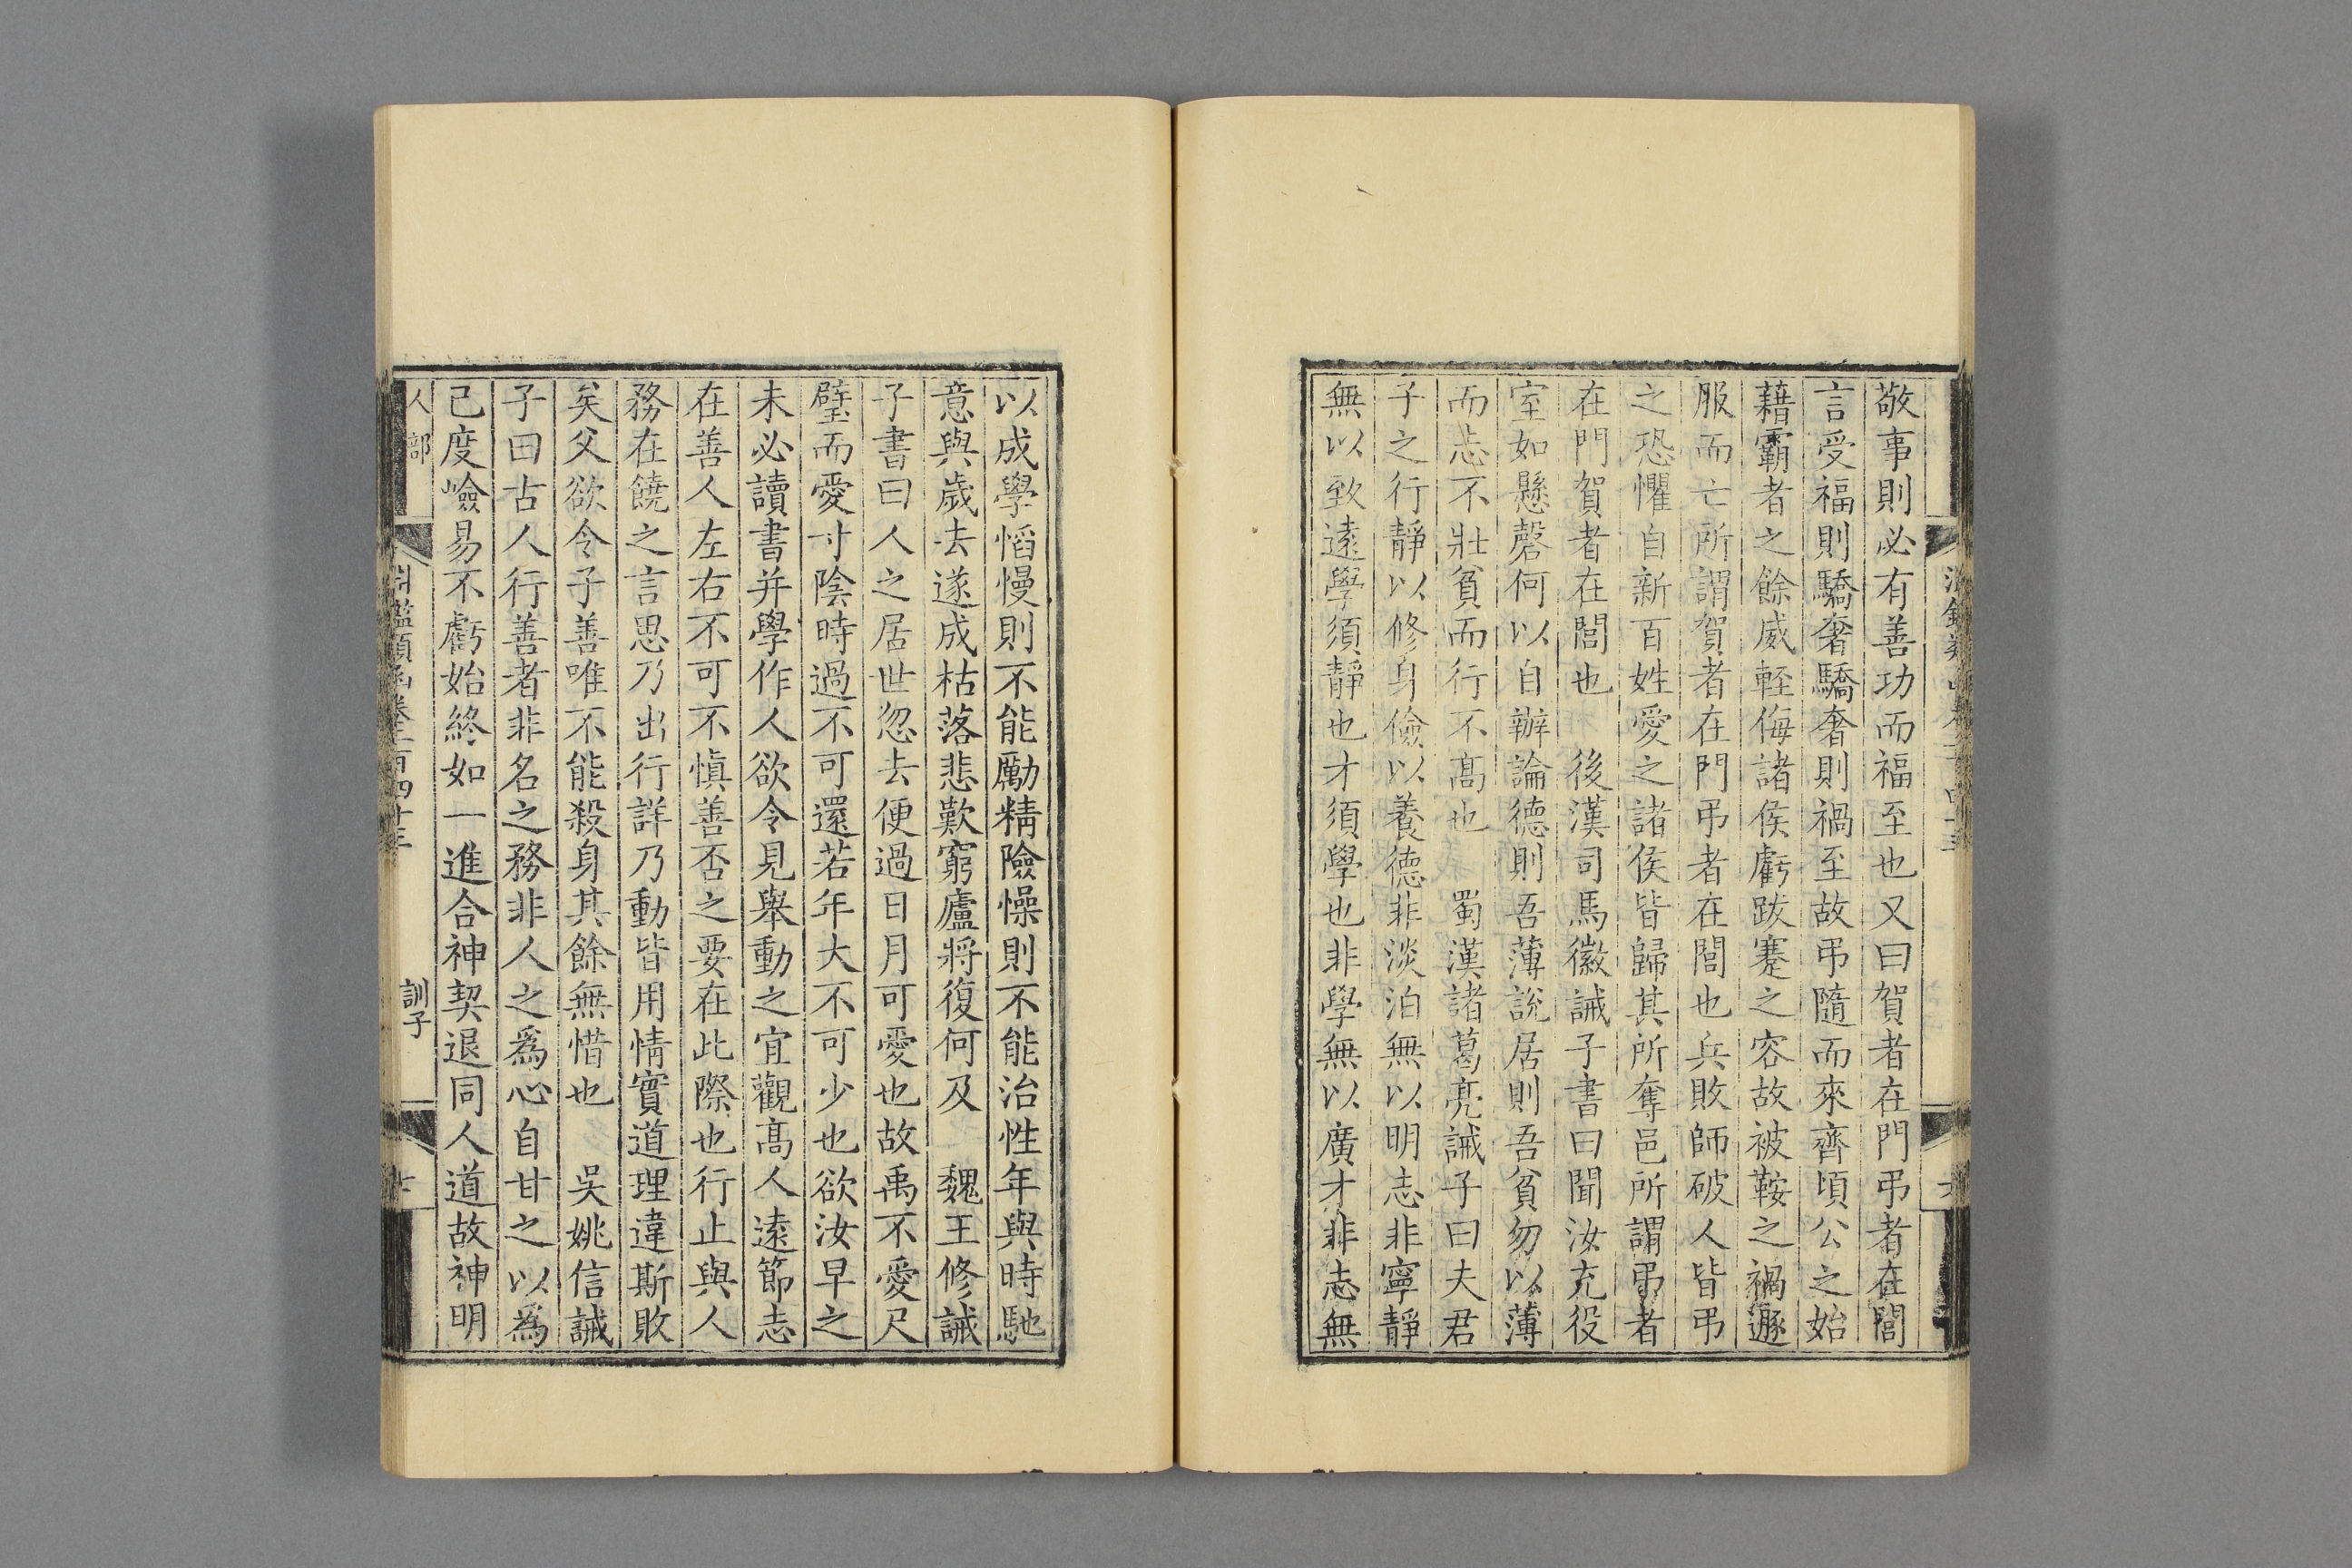 敬事則必有善功而福至也又曰賀者在門弔者在閭
言受福則驕奢驕奢則禍至故弔隨而來齊頃公之始
藉霸者之餘威輕侮諸侯虧跋蹇之容故被鞍之禍遯
服而亡所謂賀者在門弔者在閭也兵敗師破人皆弔
之恐懼自新百姓愛之諸侯皆歸其所奪邑所謂弔者
在門賀者在閭也 後漢司馬徽誡子書曰聞汝充役
室如懸磬何以自辦論德則吾薄說居則吾貧勿以薄
而志不壯貧而行不高也 蜀漢諸葛亮誡子曰夫君
子之行靜以修身儉以養德非淡泊無以明志非寧靜
無以致遠學須靜也才須學也非學無以廣才非志無
以成學慆慢則不能勵精險懆則不能治性年與時馳
意與歲去遂成枯落悲歎窮廬將復何及 魏王修誡
子書曰人之居世忽去便過日月可愛也故禹不愛尺
璧而愛寸陰時過不可還若年大不可少也欲汝早之
未必讀書并學作人欲令見舉動之宜觀高人遠節志
在善人左右不可不慎善否之要在此際也行止與人
務在饒之言思乃出行詳乃動皆用情實道理違斯敗
矣父欲令子善唯不能殺身其餘無惜也 吳姚信誡
子曰古人行善者非名之務非人之為心自甘之以為
己度嶮易不虧始終如一進合神契退同人道故神明
人部
淵鑑類函卷二百四十五
訓子